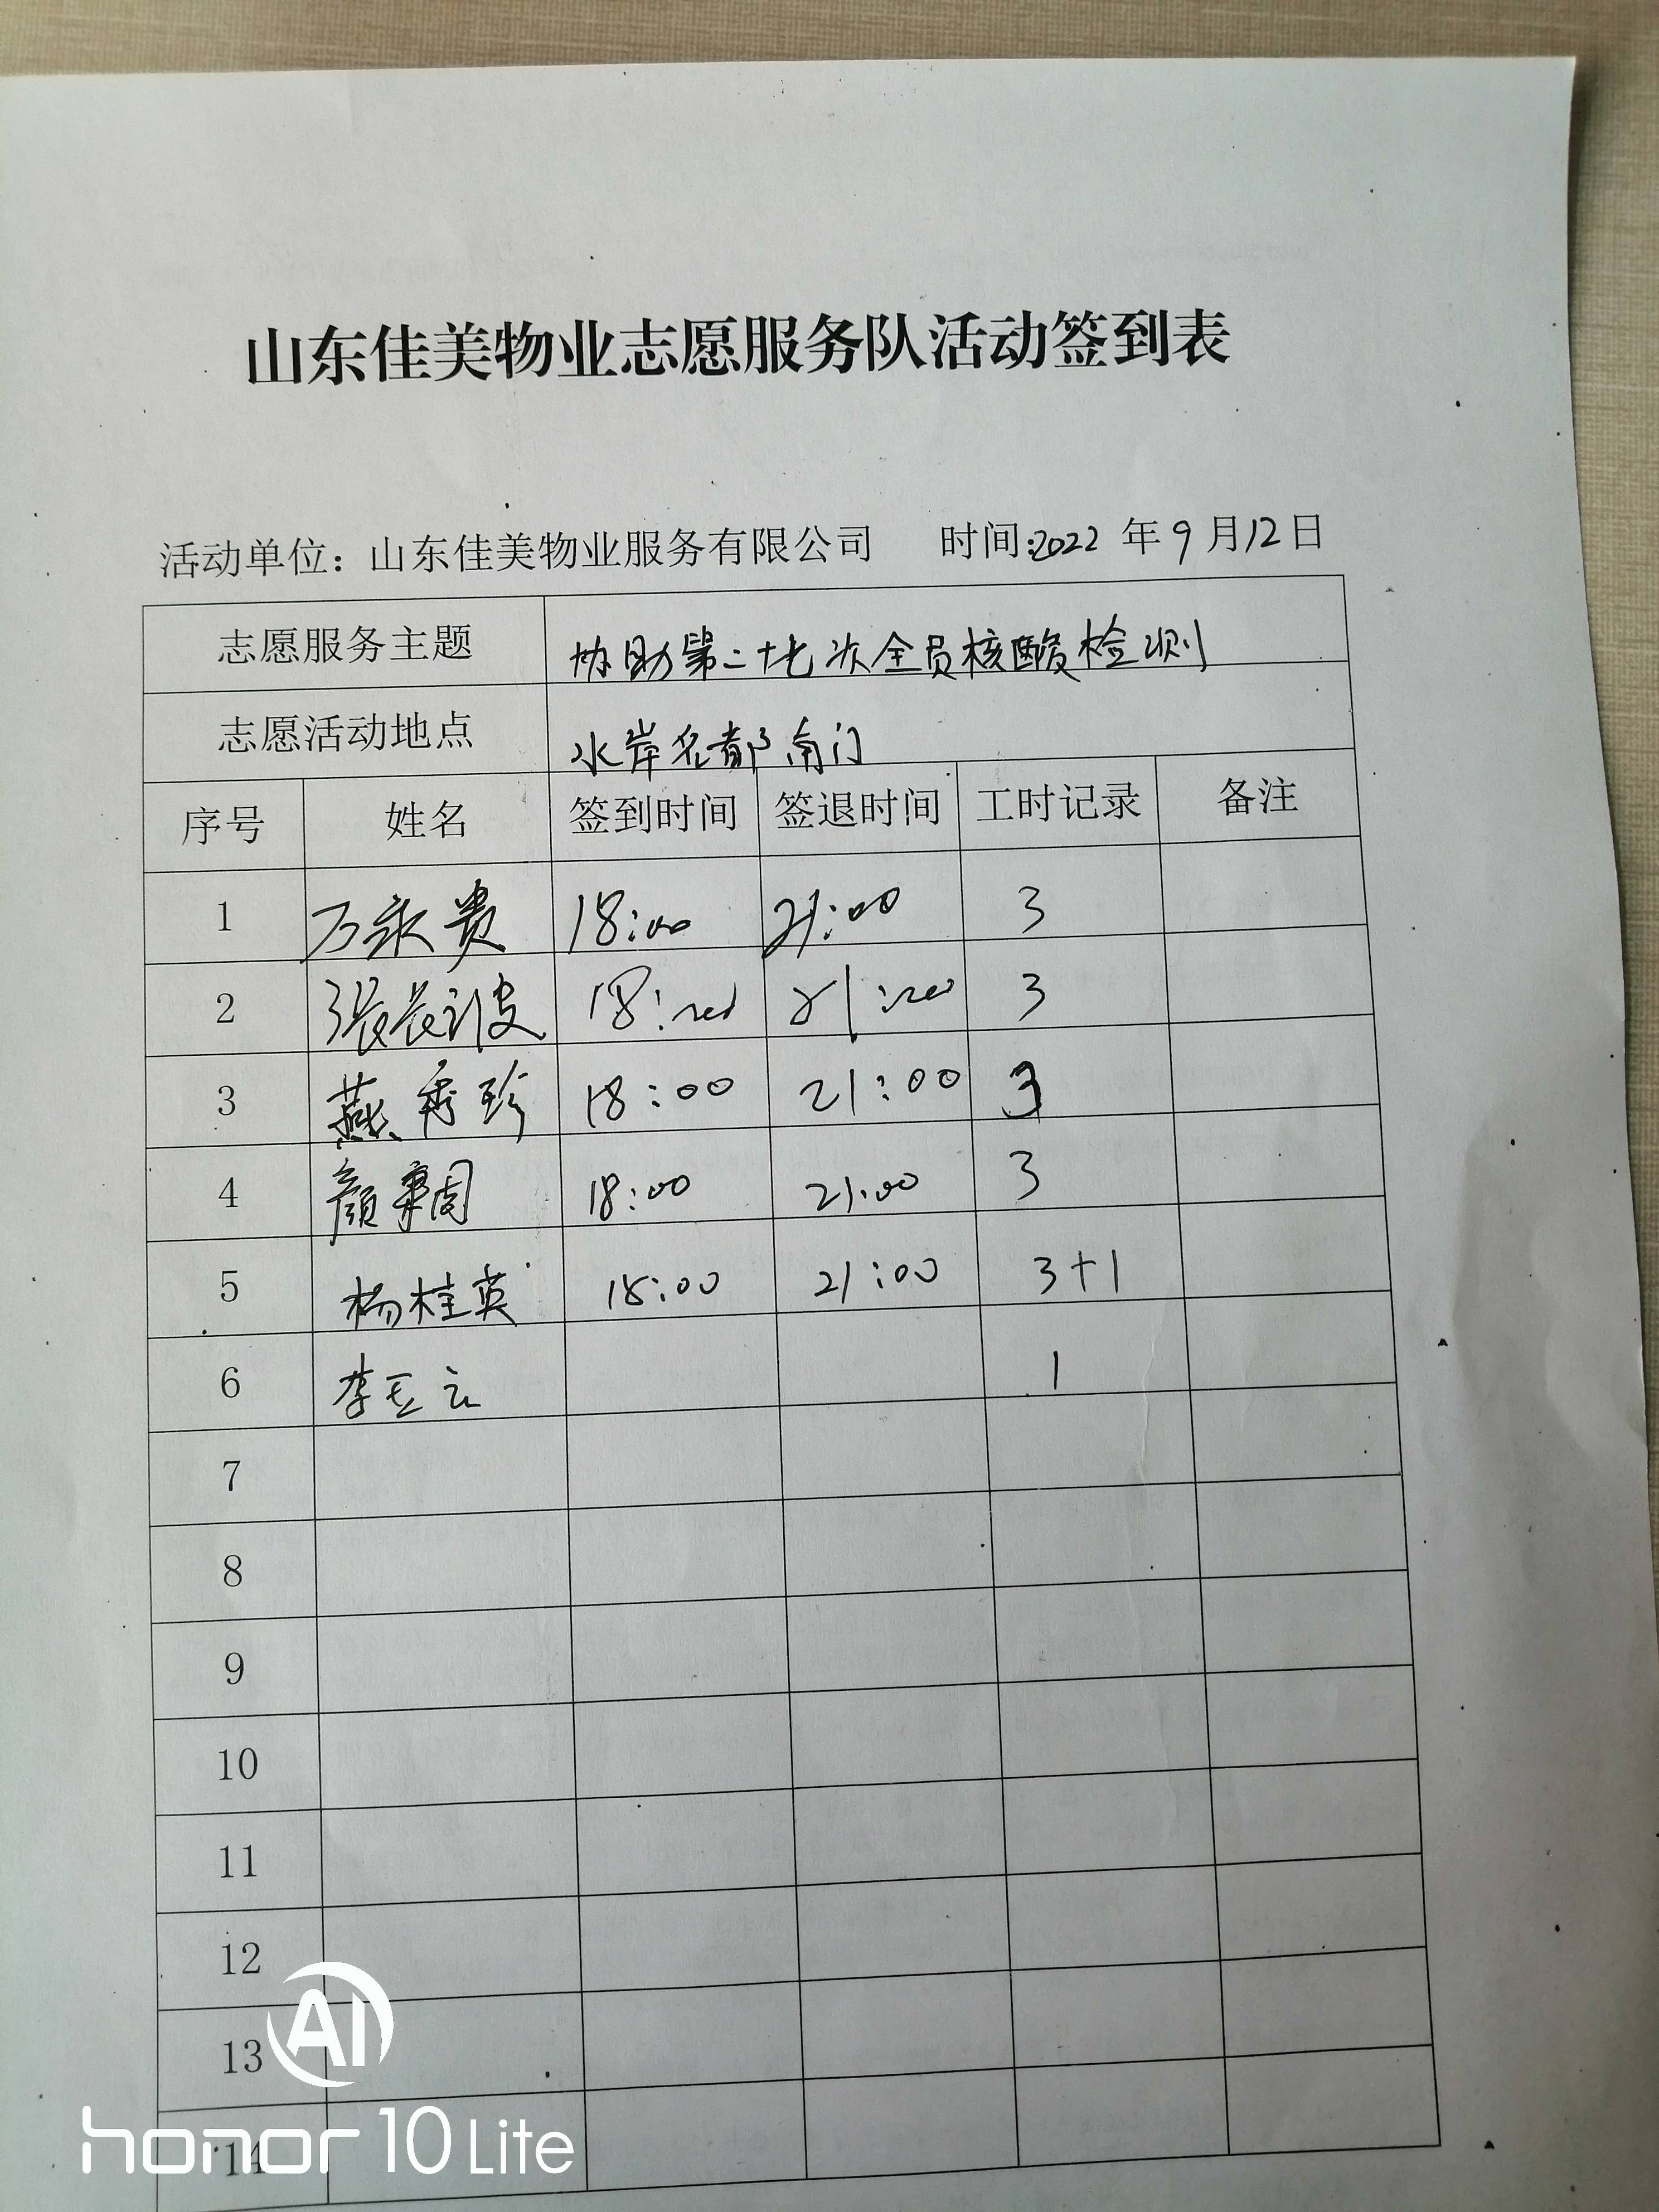 山东佳美物业志愿服务队活动签到表
活动单位：山东佳美物业服务有限公司 时间:2022 年 9 月12日
志愿服务主题 协助第二十七次全员核酸检测
志愿活动地点 水岸名都南门
序号 姓名 签到时间 签退时间 工时记录 备注
1 万永贵 18:00 21:00 3
2 张长波 18:00 21:00 3
3 燕秀珍 18:00 21:00 3
4 颜秉周 18:00 21:00 3
5 杨桂英 18:00 21:00 3+1
6 李玉云 1
7
8
9
10
11
12
13
14
AI
honor 10 Lite